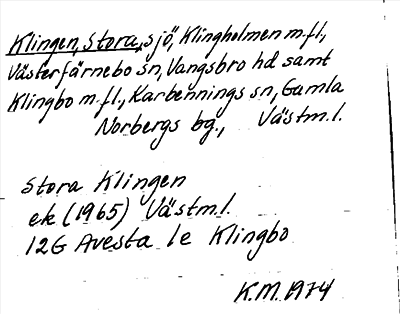 Klingen, Stora, sjö, Klingholmen m.fl.,
Västerfärnebo sn, Vangsbro hd samt
Klingbo m.fl., Karbennings sn, Gamla
Norbergs bg., Västm.l.
Stora Klingen
ek (1965) Västm.l.
12G Avesta 1e Klingbo
K.M. 1974